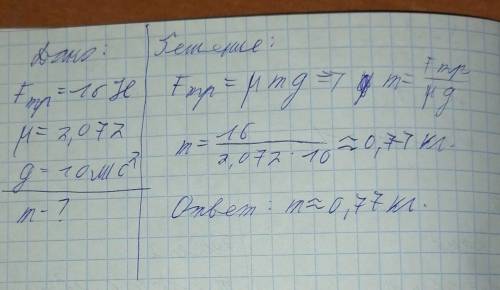 Дано:
Fтр = 16 Н
μ = 2,072
g = 10 м/с²
m - ?
Решение:
Fтр = μ m g ⇒ m = Fтр / μg
m = 16 / 2,072 · 10 ≈ 0,77 кг.
Ответ: m ≈ 0,77 кг.